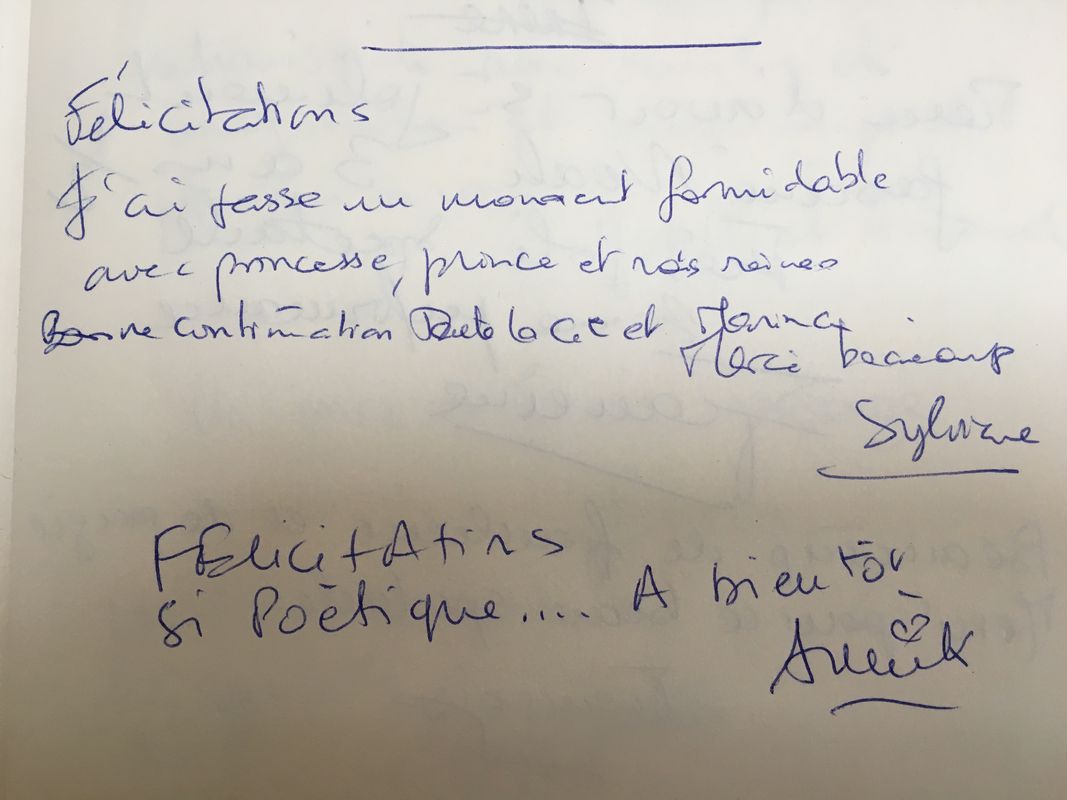 Félicitations
J'ai passé un moment formidable
avec princesse, prince et rois reines
Bonne continuation Toute la Cie et
Merci beaucoup
Sylviane
FÉlicitAtins
si Poètique.... A bientôt
Annick